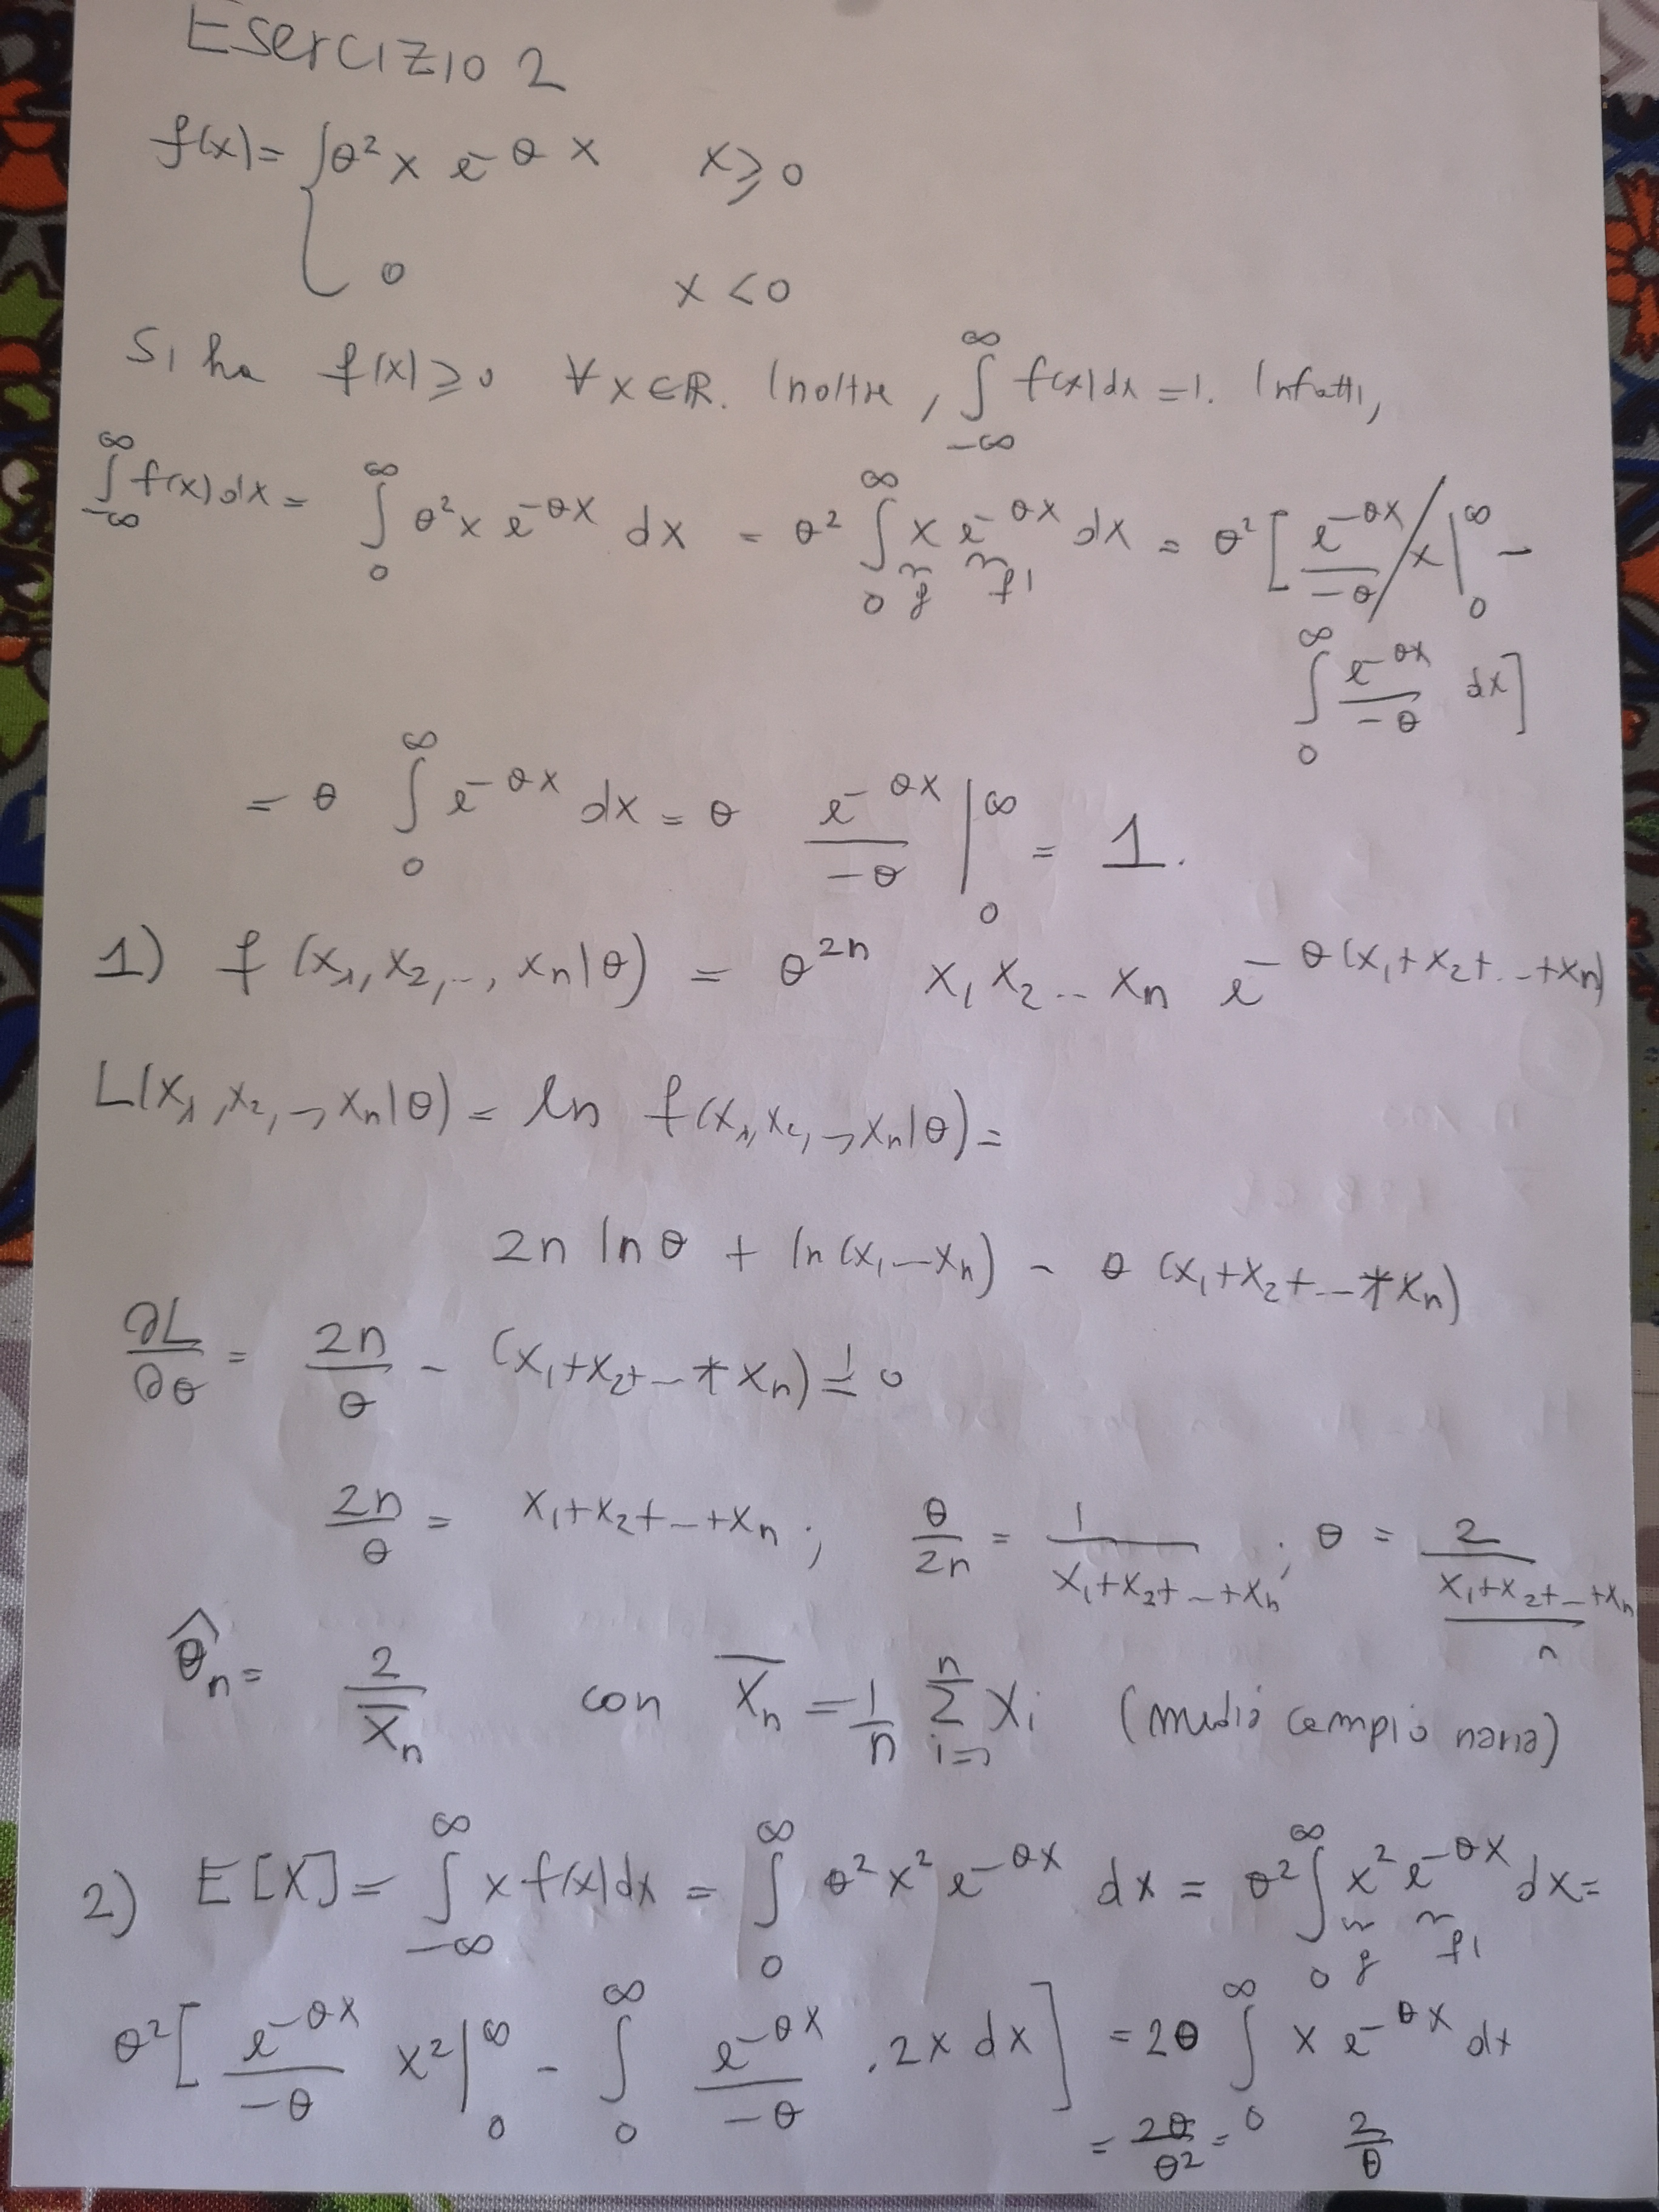 Esercizio 2
f(x) = { θ² x e^-θx    x ≥ 0
0    x < 0
Si ha f(x) ≥ 0 ∀ x ∈ ℝ. Inoltre, ∫_-∞^∞ f(x) dx = 1. Infatti,
∫_-∞^∞ f(x) dx = ∫_0^∞ θ² x e^-θx dx = θ² ∫_0^∞ x e^-θx dx = θ² [ e^-θx/-θ x |_0^∞ -
g f'
∫_0^∞ e^-θx/-θ dx ]
= θ ∫_0^∞ e^-θx dx = θ e^-θx/-θ |_0^∞ = 1.
1) f (x₁, x₂, .., xₙ|θ) = θ^2n x₁ x₂ .. xₙ e^-θ(x₁+x₂+..+xₙ)
L(x₁, x₂, -, xₙ|θ) = ln f(x₁, x₂, -, xₙ|θ) =
2n ln θ + ln (x₁ - xₙ) - θ (x₁+x₂+..+xₙ)
∂L/∂θ = 2n/θ - (x₁+x₂+..+xₙ) =! 0
2n/θ = x₁+x₂+..+xₙ ; θ/2n = 1/(x₁+x₂+..+xₙ) ; θ = 2/((x₁+x₂+..+xₙ)/n)
θ̂ₙ = 2/X̄ₙ con X̄ₙ = 1/n Σ_{i=1}^n Xᵢ (media campionaria)
2) E[X] = ∫_-∞^∞ x f(x) dx = ∫_0^∞ θ² x² e^-θx dx = θ² ∫_0^∞ x² e^-θx dx =
g f'
θ² [ e^-θx/-θ x² |_0^∞ - ∫_0^∞ e^-θx/-θ . 2x dx ] = 2θ ∫_0^∞ x e^-θx dx
= 2θ/θ² = 2/θ